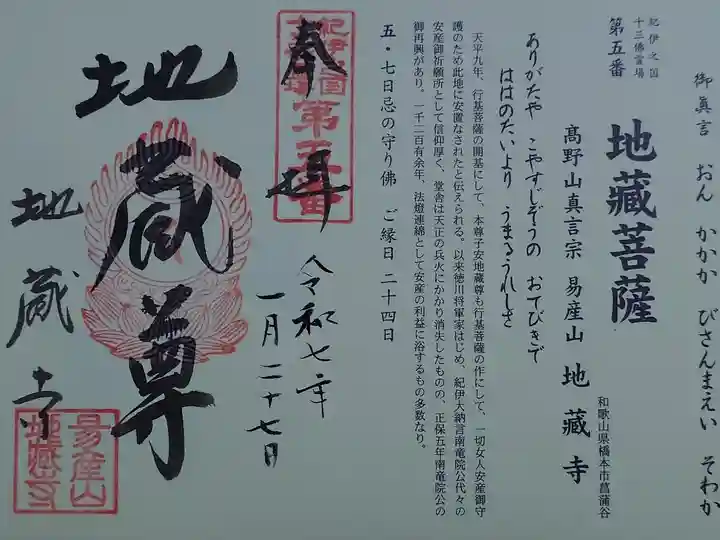 御眞言 おん かかか びさんまえい そわか
紀伊之国
十三佛霊場
第五番
地藏菩薩
和歌山県橋本市菖蒲谷
髙野山真言宗 易産山 地藏寺
ありがたや こやすじぞうの おてびきで
ははのたいより うまるうれしさ
天平九年、行基菩薩の開基にして、本尊子安地蔵尊も行基菩薩の作にして、一切女人安産御守
護のため此地に安置なされたと伝えられる。以来徳川将軍家はじめ、紀伊大納言南竜院公代々の
安産御祈願所として信仰厚く、堂舎は天正の兵火にかかり消失したものの、正保五年南竜院公の
御再興があり。一千二百有余年、法燈連綿として安産の利益に浴するもの多数なり。
五・七日忌の守り佛 ご縁日 二十四日
奉拝
紀伊之国
十三佛霊場
第五番
令和七年
一月二十七日
地蔵尊
地蔵寺
易産山
地蔵寺